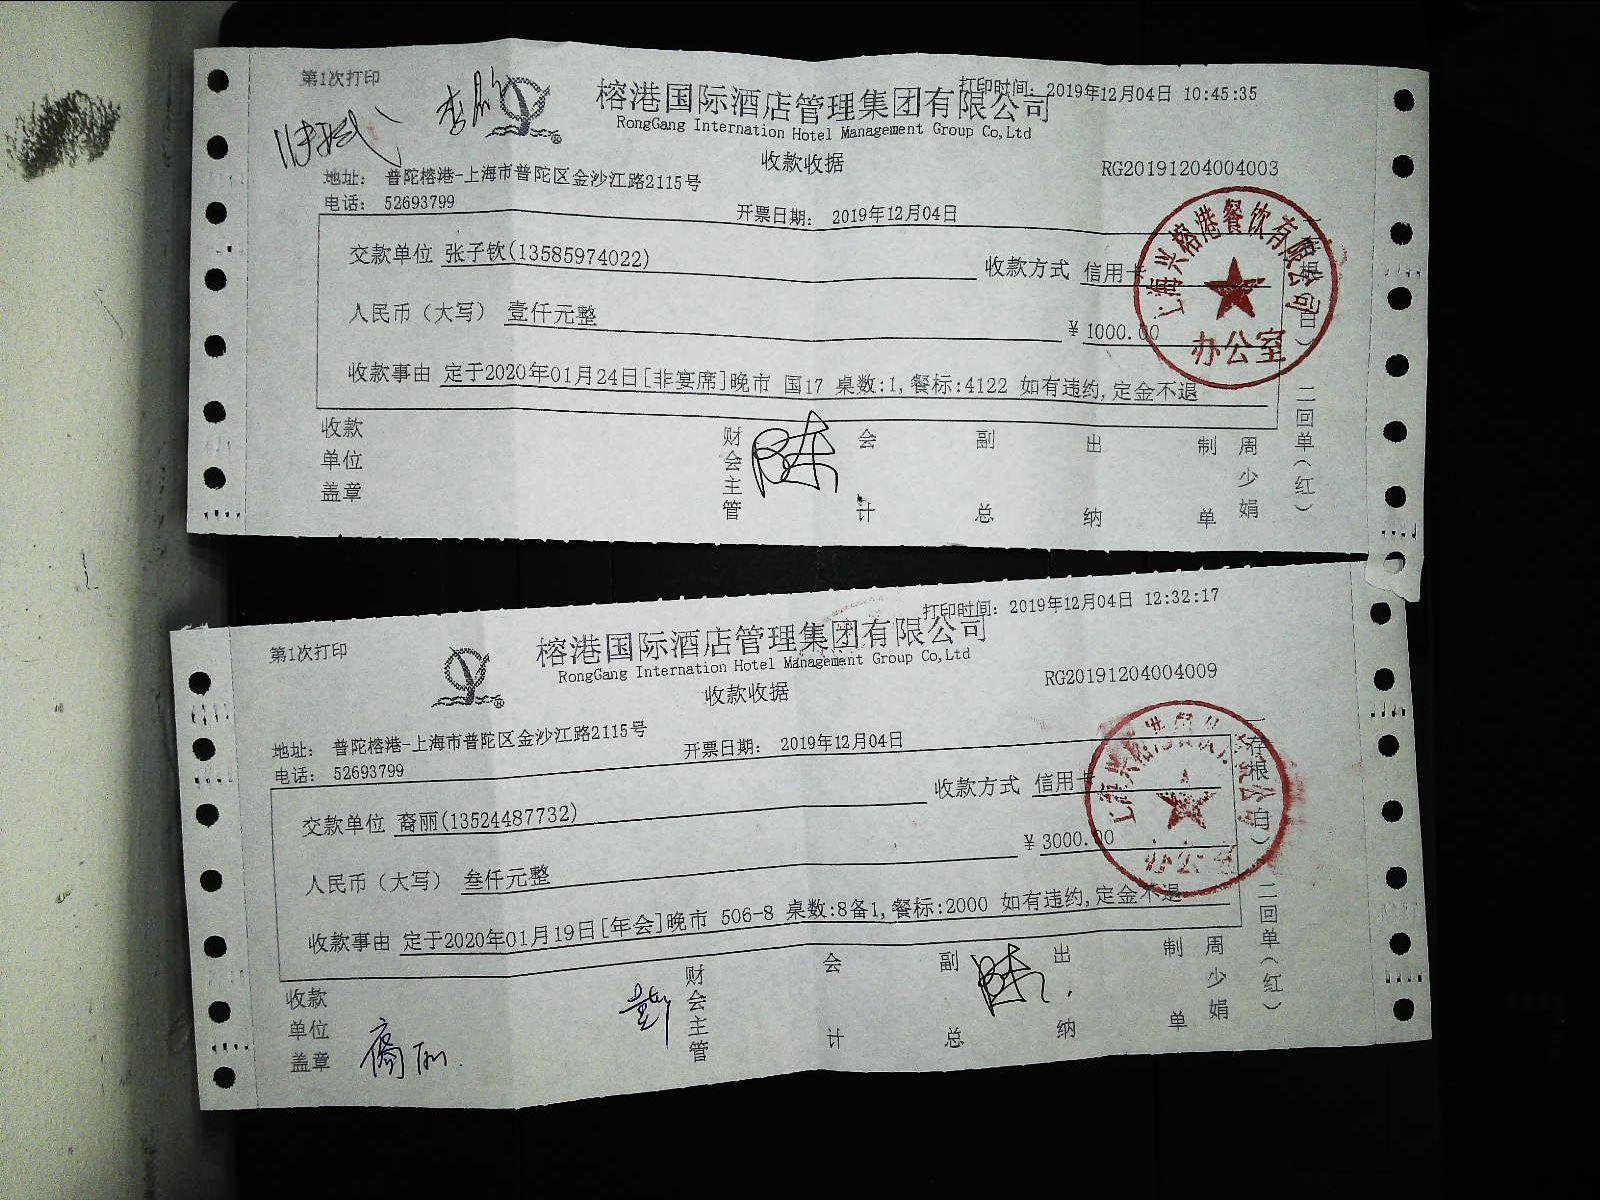 第1次打印
打印时间: 2019年12月04日 10:45:35
榕港国际酒店管理集团有限公司
RongGang Internation Hotel Management Group Co,Ltd
收款收据
RG20191204004003
地址: 普陀榕港-上海市普陀区金沙江路2115号
电话: 52693799
开票日期: 2019年12月04日
交款单位 张子钦(13585974022)
收款方式 信用卡
人民币（大写） 壹仟元整
¥ 1000.00
收款事由 定于2020年01月24日[非宴席]晚市 国17 桌数:1,餐标:4122 如有违约,定金不退
收款单位盖章
财会主管
会计
副总
出纳
制单
周少娟
二回单(红)
上海兴榕港餐饮有限公司
办公室
第1次打印
打印时间: 2019年12月04日 12:32:17
榕港国际酒店管理集团有限公司
RongGang Internation Hotel Management Group Co,Ltd
收款收据
RG20191204004009
地址: 普陀榕港-上海市普陀区金沙江路2115号
电话: 52693799
开票日期: 2019年12月04日
交款单位 裔丽(13524487732)
收款方式 信用卡
人民币（大写） 叁仟元整
¥ 3000.00
收款事由 定于2020年01月19日[年会]晚市 506-8 桌数:8备1,餐标:2000 如有违约,定金不退
收款单位盖章
裔丽
财会主管
会计
副总
出纳
制单
周少娟
一存根(白)
二回单(红)
办公室